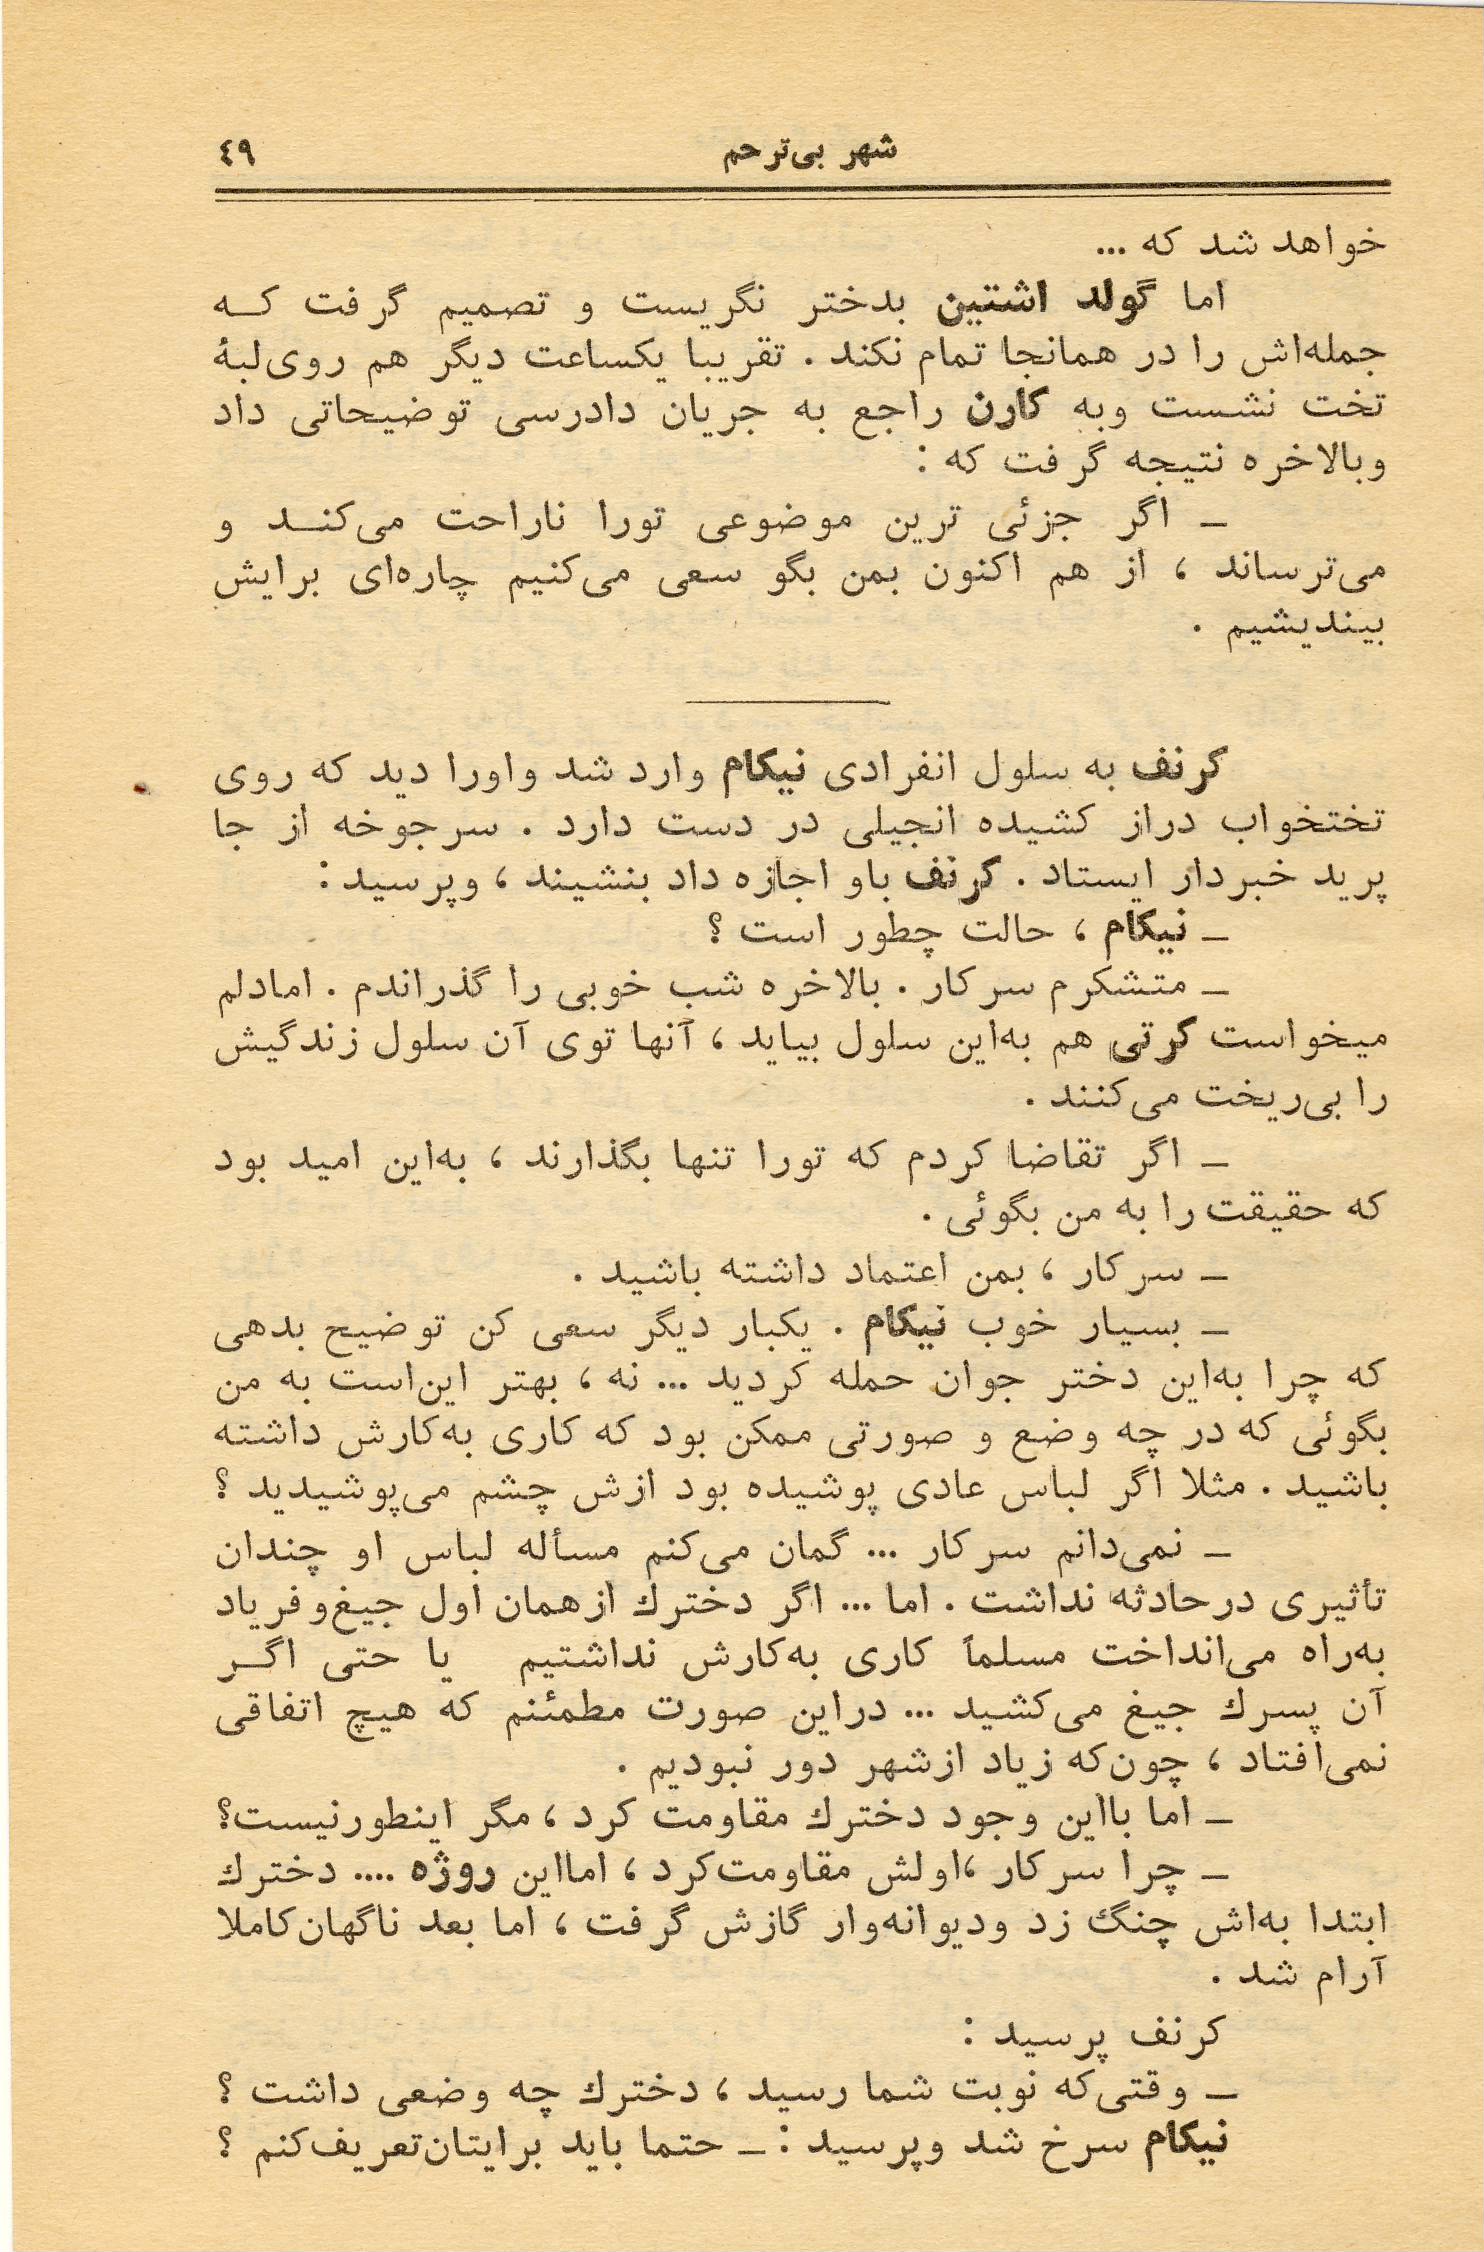 شهر بی‌ترحم
٤٩
خواهد شد که ...
اما گولد اشتین بدختر نگریست و تصمیم گرفت که
جمله‌اش را در همانجا تمام نکند . تقریبا یکساعت دیگر هم روی‌لبهٔ
تخت نشست وبه کارن راجع به جریان دادرسی توضیحاتی داد
وبالاخره نتیجه گرفت که :
ـ اگر جزئی ترین موضوعی تورا ناراحت می‌کنـد و
می‌ترساند ، از هم اکنون بمن بگو سعی می‌کنیم چاره‌ای برایش
بیندیشیم .
گرنف به سلول انفرادی نیکام وارد شد واورا دید که روی
تختخواب دراز کشیده انجیلی در دست دارد . سرجوخه از جا
پرید خبردار ایستاد . گرنف باو اجازه داد بنشیند ، وپرسید :
ـ نیکام ، حالت چطور است ؟
ـ متشکرم سرکار . بالاخره شب خوبی را گذراندم . امادلم
میخواست کرتی هم به‌این سلول بیاید ، آنها توی آن سلول زندگیش
را بی‌ریخت می‌کنند .
ـ اگر تقاضا کردم که تورا تنها بگذارند ، به‌این امید بود
که حقیقت را به من بگوئی .
ـ سرکار ، بمن اعتماد داشته باشید .
ـ بسیار خوب نیکام . یکبار دیگر سعی کن توضیح بدهی
که چرا به‌این دختر جوان حمله کردید ... نه ، بهتر این‌است به من
بگوئی که در چه وضع و صورتی ممکن بود که کاری به‌کارش داشته
باشید . مثلا اگر لباس عادی پوشیده بود ازش چشم می‌پوشیدید ؟
ـ نمی‌دانم سرکار ... گمان می‌کنم مسأله لباس او چندان
تأثیری درحادثه نداشت . اما ... اگر دخترك ازهمان اول جیغ‌وفریاد
به‌راه می‌انداخت مسلماً کاری به‌کارش نداشتیم یا حتی اگـر
آن پسرك جیغ می‌کشید ... دراین صورت مطمئنم که هیچ اتفاقی
نمی‌افتاد ، چون‌که زیاد ازشهر دور نبودیم .
ـ اما بااین وجود دخترك مقاومت کرد ، مگر اینطورنیست؟
ـ چرا سرکار ،اولش مقاومت‌کرد ، امااین روژه .... دخترك
ابتدا به‌اش چنگ زد ودیوانه‌وار گازش گرفت ، اما بعد ناگهان‌کاملا
آرام شد .
کرنف پرسید :
ـ وقتی‌که نوبت شما رسید ، دخترك چه وضعی داشت ؟
نیکام سرخ شد وپرسید : ـ حتما باید برایتان‌تعریف‌کنم ؟